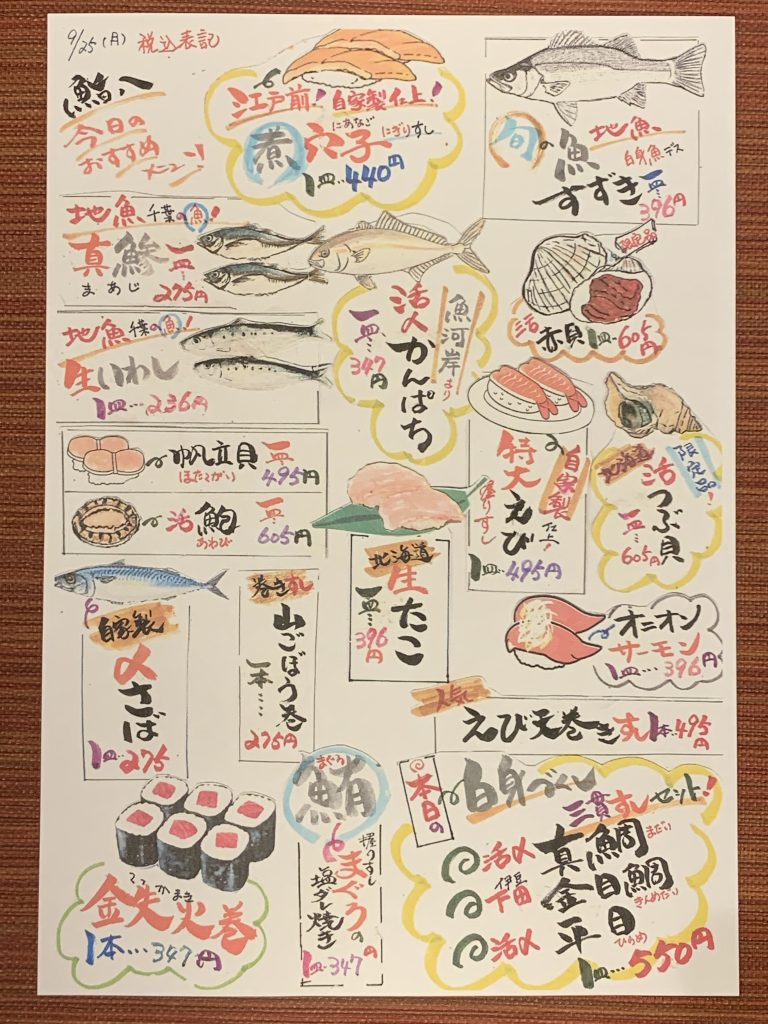 9/25(月) 税込表記
鮨八
今日の
おすすめ
メニュー!
江戸前! 自家製仕上!
煮穴子
にあなご
にぎりすし
1皿…440円
旬の魚
地魚
白身魚デス
すずき
一皿…
396円
地魚 千葉の魚!
真鯵
まあじ
一皿…
275円
地魚 千葉の魚!
生いわし
1皿…236円
魚河岸より
活〆かんぱち
一皿…347円
限定品
活赤貝 1皿…605円
帆立貝
ほたてがい
一皿…
495円
活鮑
あわび
一皿…
605円
自家製仕上!
特大えび
握りすし
1皿…495円
北海道
限定品!
活つぶ貝
一皿…
605円
北海道
生たこ
一皿…
396円
自家製
〆さば
1皿…275
巻きすし
山ごぼう巻
一本…
275円
オニオン
サーモン
1皿…396円
人気
えび天巻きすし1本…495円
鉄火巻
てっかまき
1本…347円
まぐろ
鮪
握りすし
まぐろの
塩ダレ焼き
1皿…347円
本日の
白身づくし
三貫すしセット!
活〆真鯛
まだい
伊豆下田金目鯛
きんめだい
活〆平目
ひらめ
1皿…550円